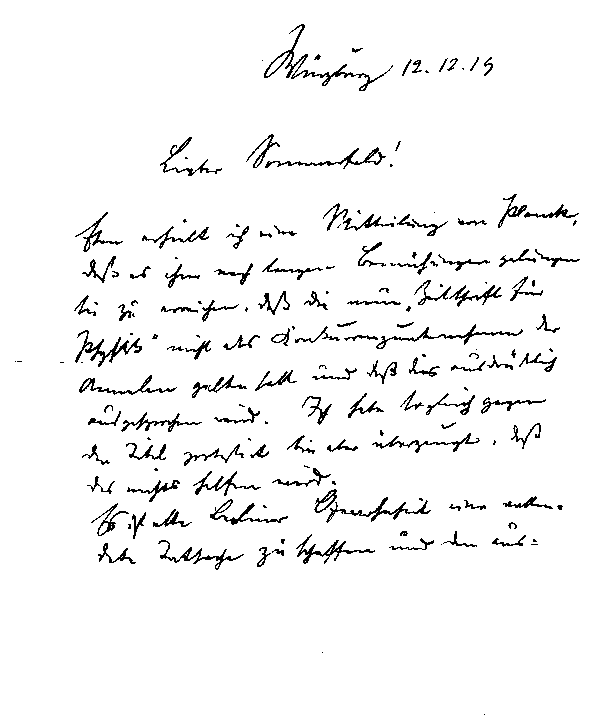 Würzburg 12.12.19
Lieber Sommerfeld!
Eben erhielt ich eine Mitteilung von Planck,
daß es ihm nach langen Bemühungen gelungen
sei zu erreichen, daß die neue „Zeitschrift für
Physik“ nicht als Konkurrenzunternehmen der
Annalen gelten soll und daß dies ausdrücklich
ausgesprochen wird. Ich habe sogleich gegen
den Titel protestiert bin aber überzeugt, daß
das nichts helfen wird.
Es ist alte Berliner Gewohnheit eine vollen-
dete Tatsache zu schaffen und den aus-